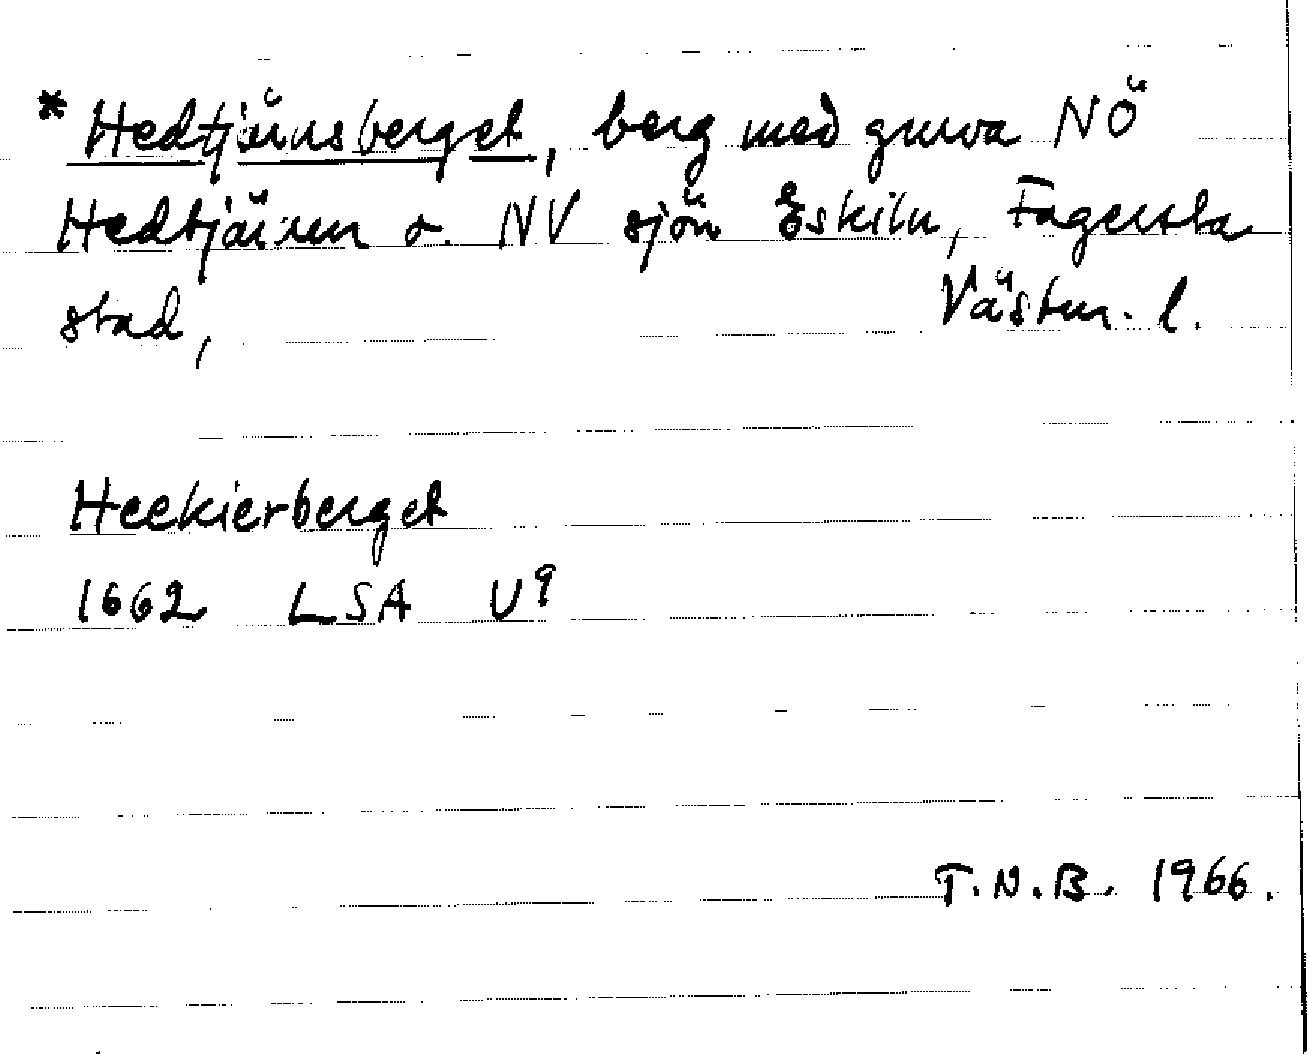 * Hedtjärnsberget, berg med gruva NÖ
Hedtjärnen o. NV sjön Eskiln, Fagersta
stad, Västm. l.
Heekierberget
1662 LSA U9
T.N.B. 1966.